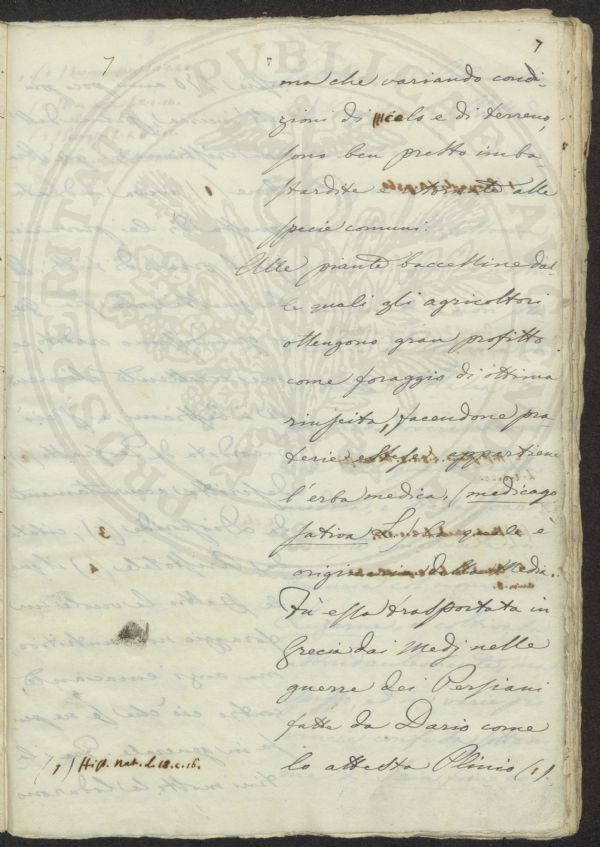 7
7
ma che variando condi-
zioni di cielo e di terreno,
sono ben presto imba-
stardite e ritornate alle
specie comuni.
Alle piante baccelline dal-
le quali gli agricoltori
ottengono gran profitto
come foraggio di ottima
riuscita, facendone pra-
terie estese appartiene
l'erba medica, (medicago
sativa L.) la quale è
originaria della Media.
Fù essa trasportata in
Grecia dai Medj nelle
guerre dei Persiani
fatte da Dario come
lo attesta Plinio (1).
(1) Hist. nat. l. 18. c. 16.